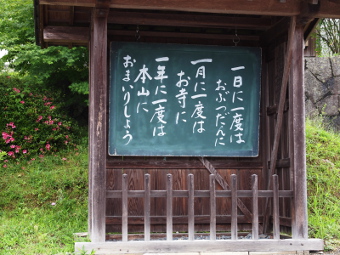 一日に一度は
おぶつだんに
一月に一度は
お寺に
一年に一度は
本山に
おまいりしょう